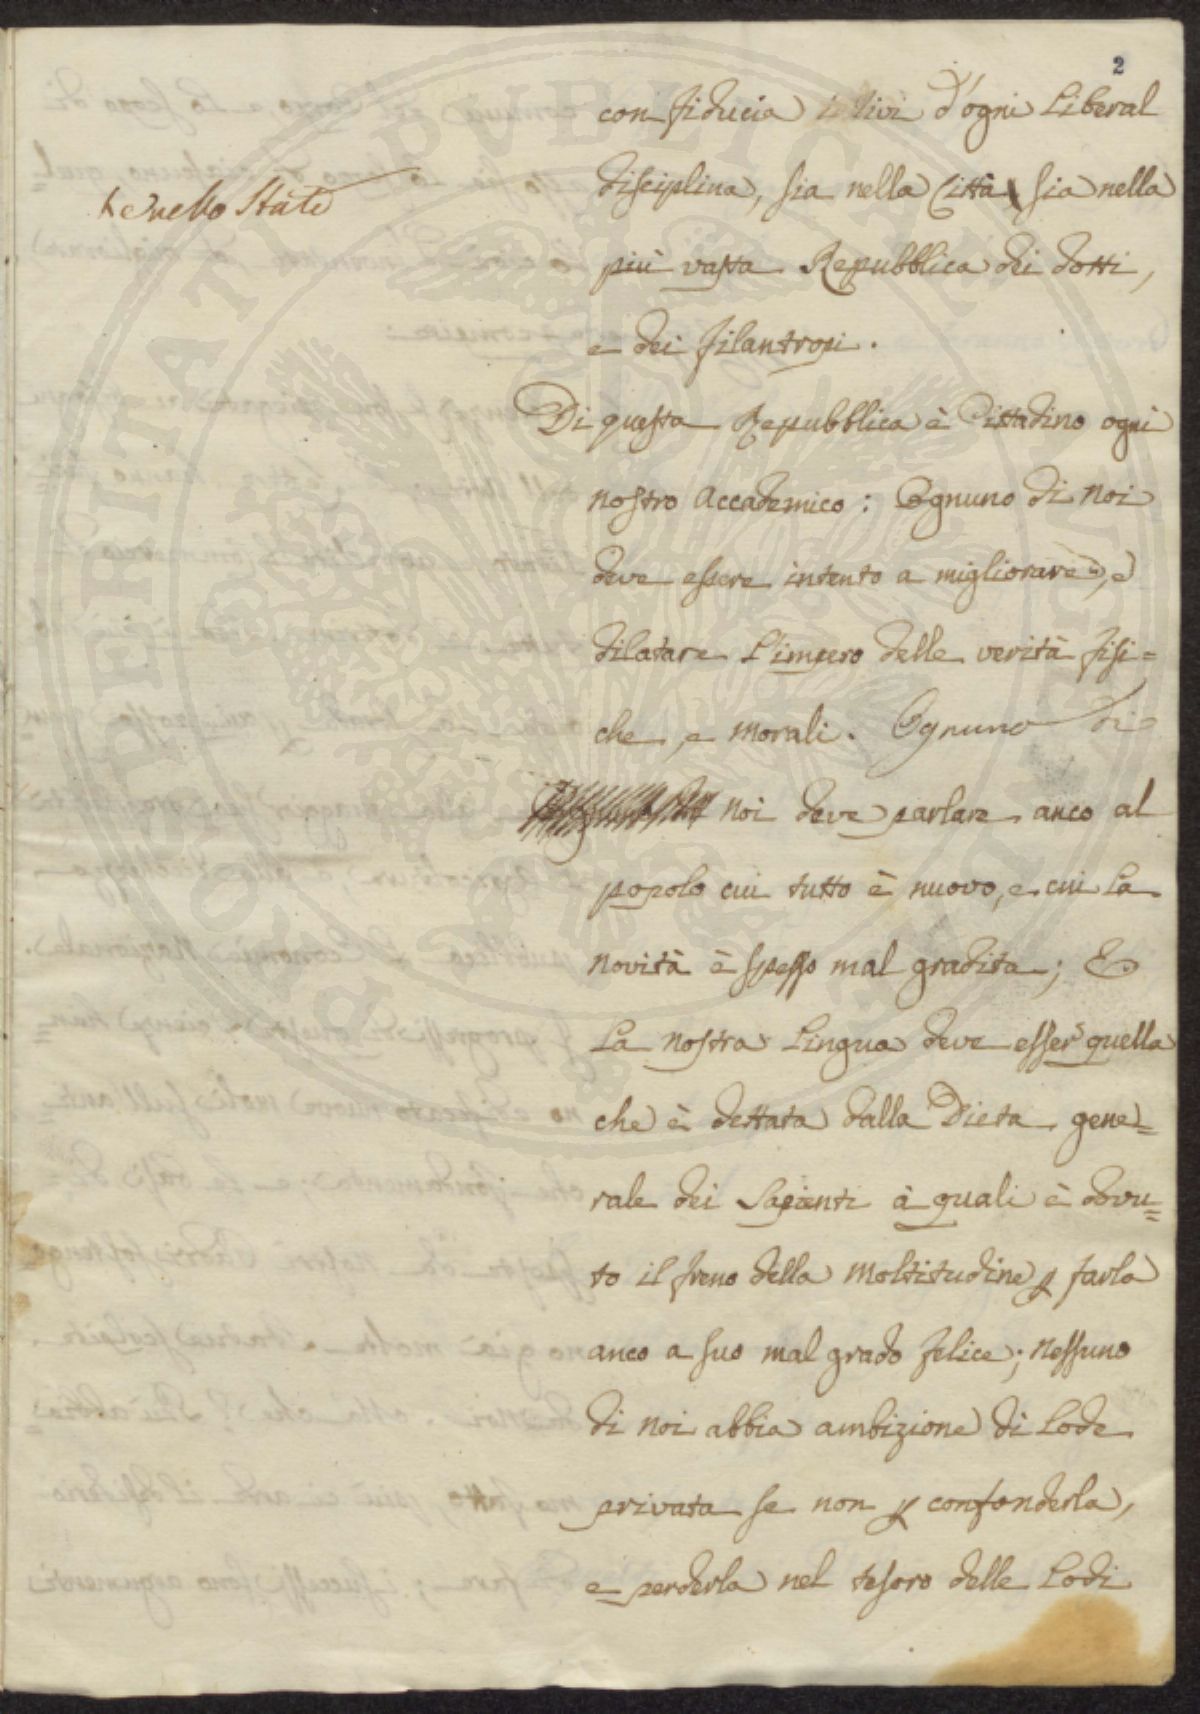 2
con fiducia i Vivi d'ogni liberal
disciplina, sia nella Città sia nella
e nello Stato
più vasta Repubblica dei dotti,
e dei filantropi.
Di questa Repubblica è Cittadino ogni
nostro Accademico: Ognuno di noi
deve essere intento a migliorare, e
dilatare l'impero delle verità fisi=
che, e morali. Ognuno di
noi deve parlare anco al
popolo cui tutto è nuovo, e cui la
novità è spesso mal gradita; E
la nostra lingua deve esser quella
che è dettata dalla Dieta gene=
rale dei Sapienti à quali è dovu=
to il freno della moltitudine p farla
anco a suo mal grado felice; nessuno
di noi abbia ambizione di lode
privata se non p confonderla,
e perderla nel tesoro delle lodi
PROSPERITATI PUBLICAE